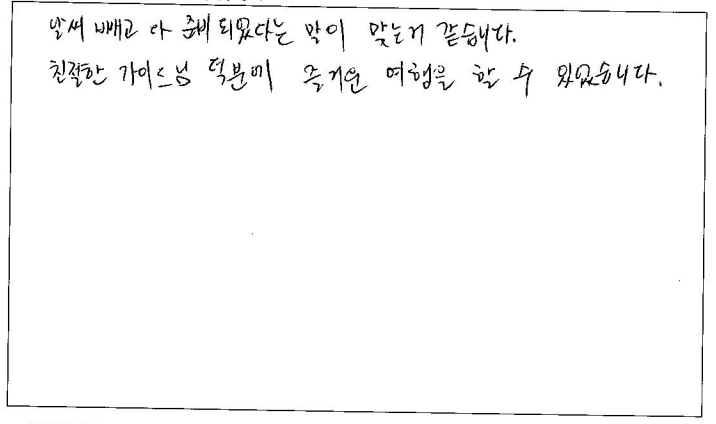 날씨 빼고 다 준비되었다는 말이 맞는거 같습니다.
친절한 가이드님 덕분에 즐거운 여행을 할 수 있었습니다.